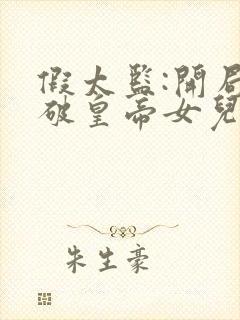 假太監:開局
破皇帝女兒
朱生豪